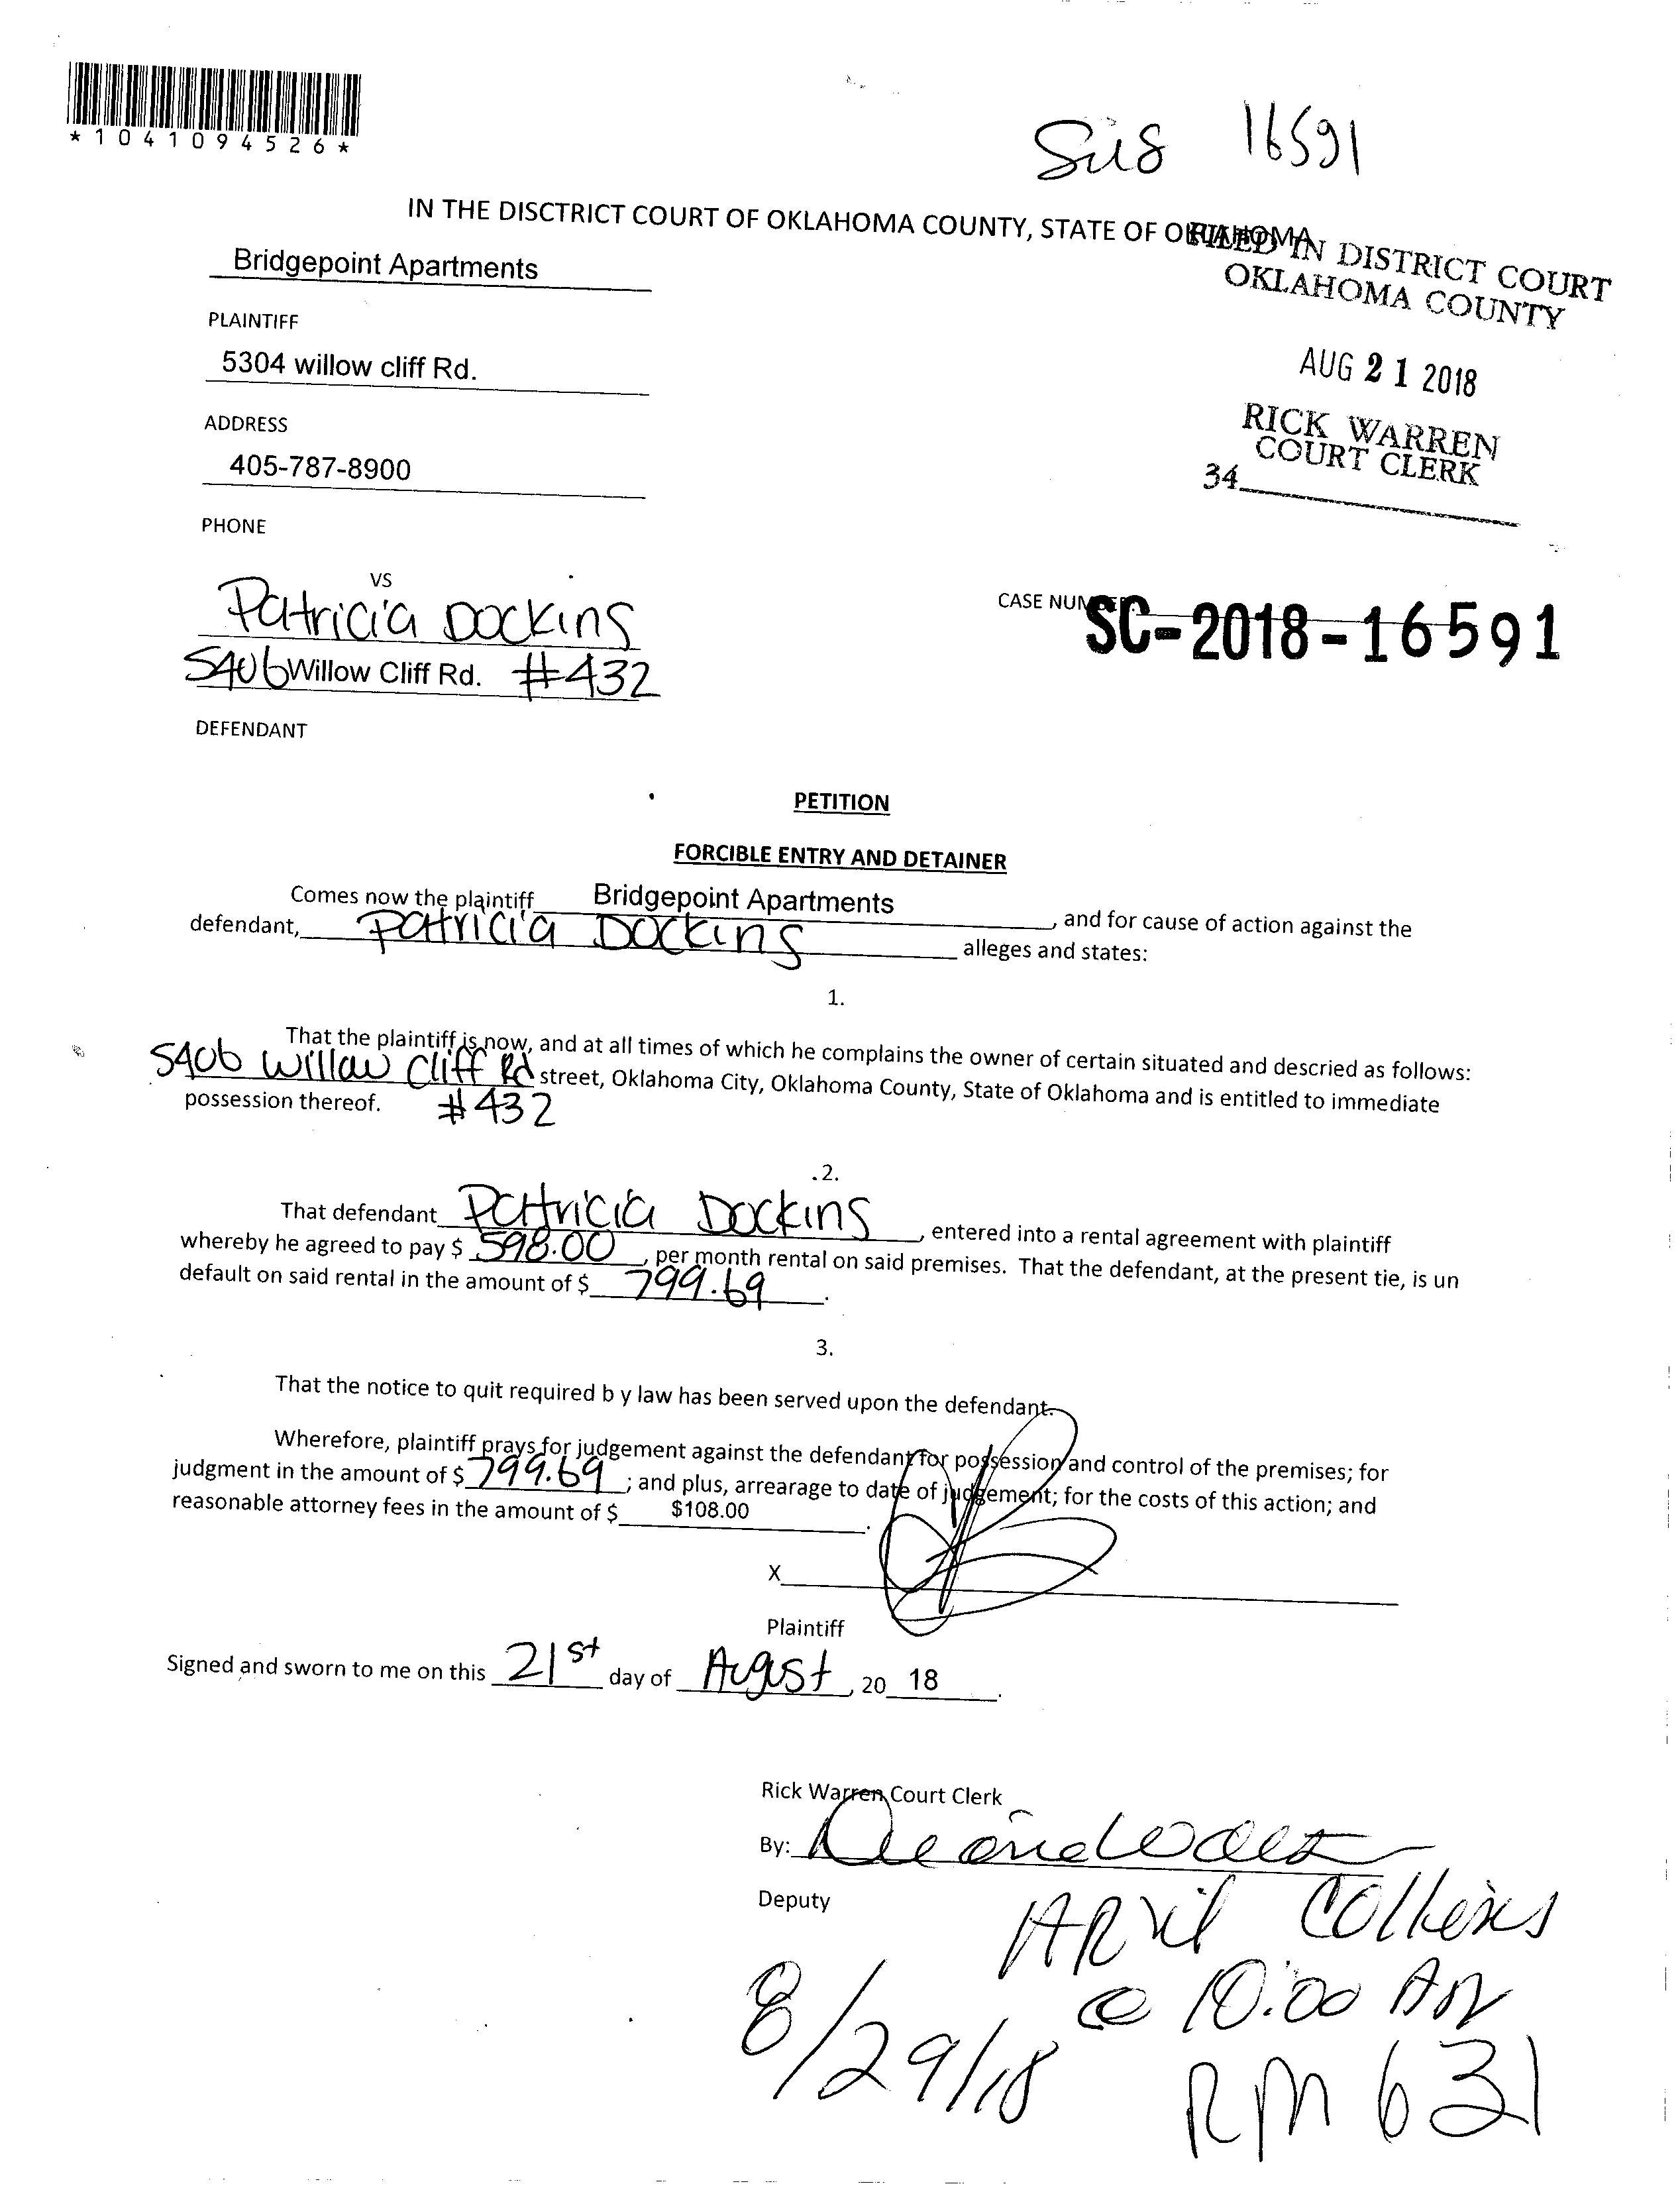 *1041094526*
Sis 16591
IN THE DISCTRICT COURT OF OKLAHOMA COUNTY, STATE OF OKLAHOMA
FILED IN DISTRICT COURT
OKLAHOMA COUNTY
Bridgepoint Apartments
PLAINTIFF
5304 willow cliff Rd.
AUG 21 2018
ADDRESS
RICK WARREN
COURT CLERK
405-787-8900
34
PHONE
VS
Patricia Dockins
CASE NUMBER:
SC-2018-16591
5406 Willow Cliff Rd. #432
DEFENDANT
PETITION
FORCIBLE ENTRY AND DETAINER
Comes now the plaintiff Bridgepoint Apartments, and for cause of action against the
defendant, Patricia Dockins alleges and states:
1.
That the plaintiff is now, and at all times of which he complains the owner of certain situated and descried as follows:
5406 Willow Cliff Rd street, Oklahoma City, Oklahoma County, State of Oklahoma and is entitled to immediate
possession thereof. #432
.2.
That defendant Patricia Dockins, entered into a rental agreement with plaintiff
whereby he agreed to pay $ 598.00, per month rental on said premises. That the defendant, at the present tie, is un
default on said rental in the amount of $ 799.69.
3.
That the notice to quit required b y law has been served upon the defendant.
Wherefore, plaintiff prays for judgement against the defendant for possession and control of the premises; for
judgment in the amount of $ 799.69; and plus, arrearage to date of judgement; for the costs of this action; and
reasonable attorney fees in the amount of $ $108.00.
X
Plaintiff
Signed and sworn to me on this 21st day of Augst, 20 18.
Rick Warren Court Clerk
By:
Deputy
April Collins
8/29/18 @ 10:00 AM
RM 631